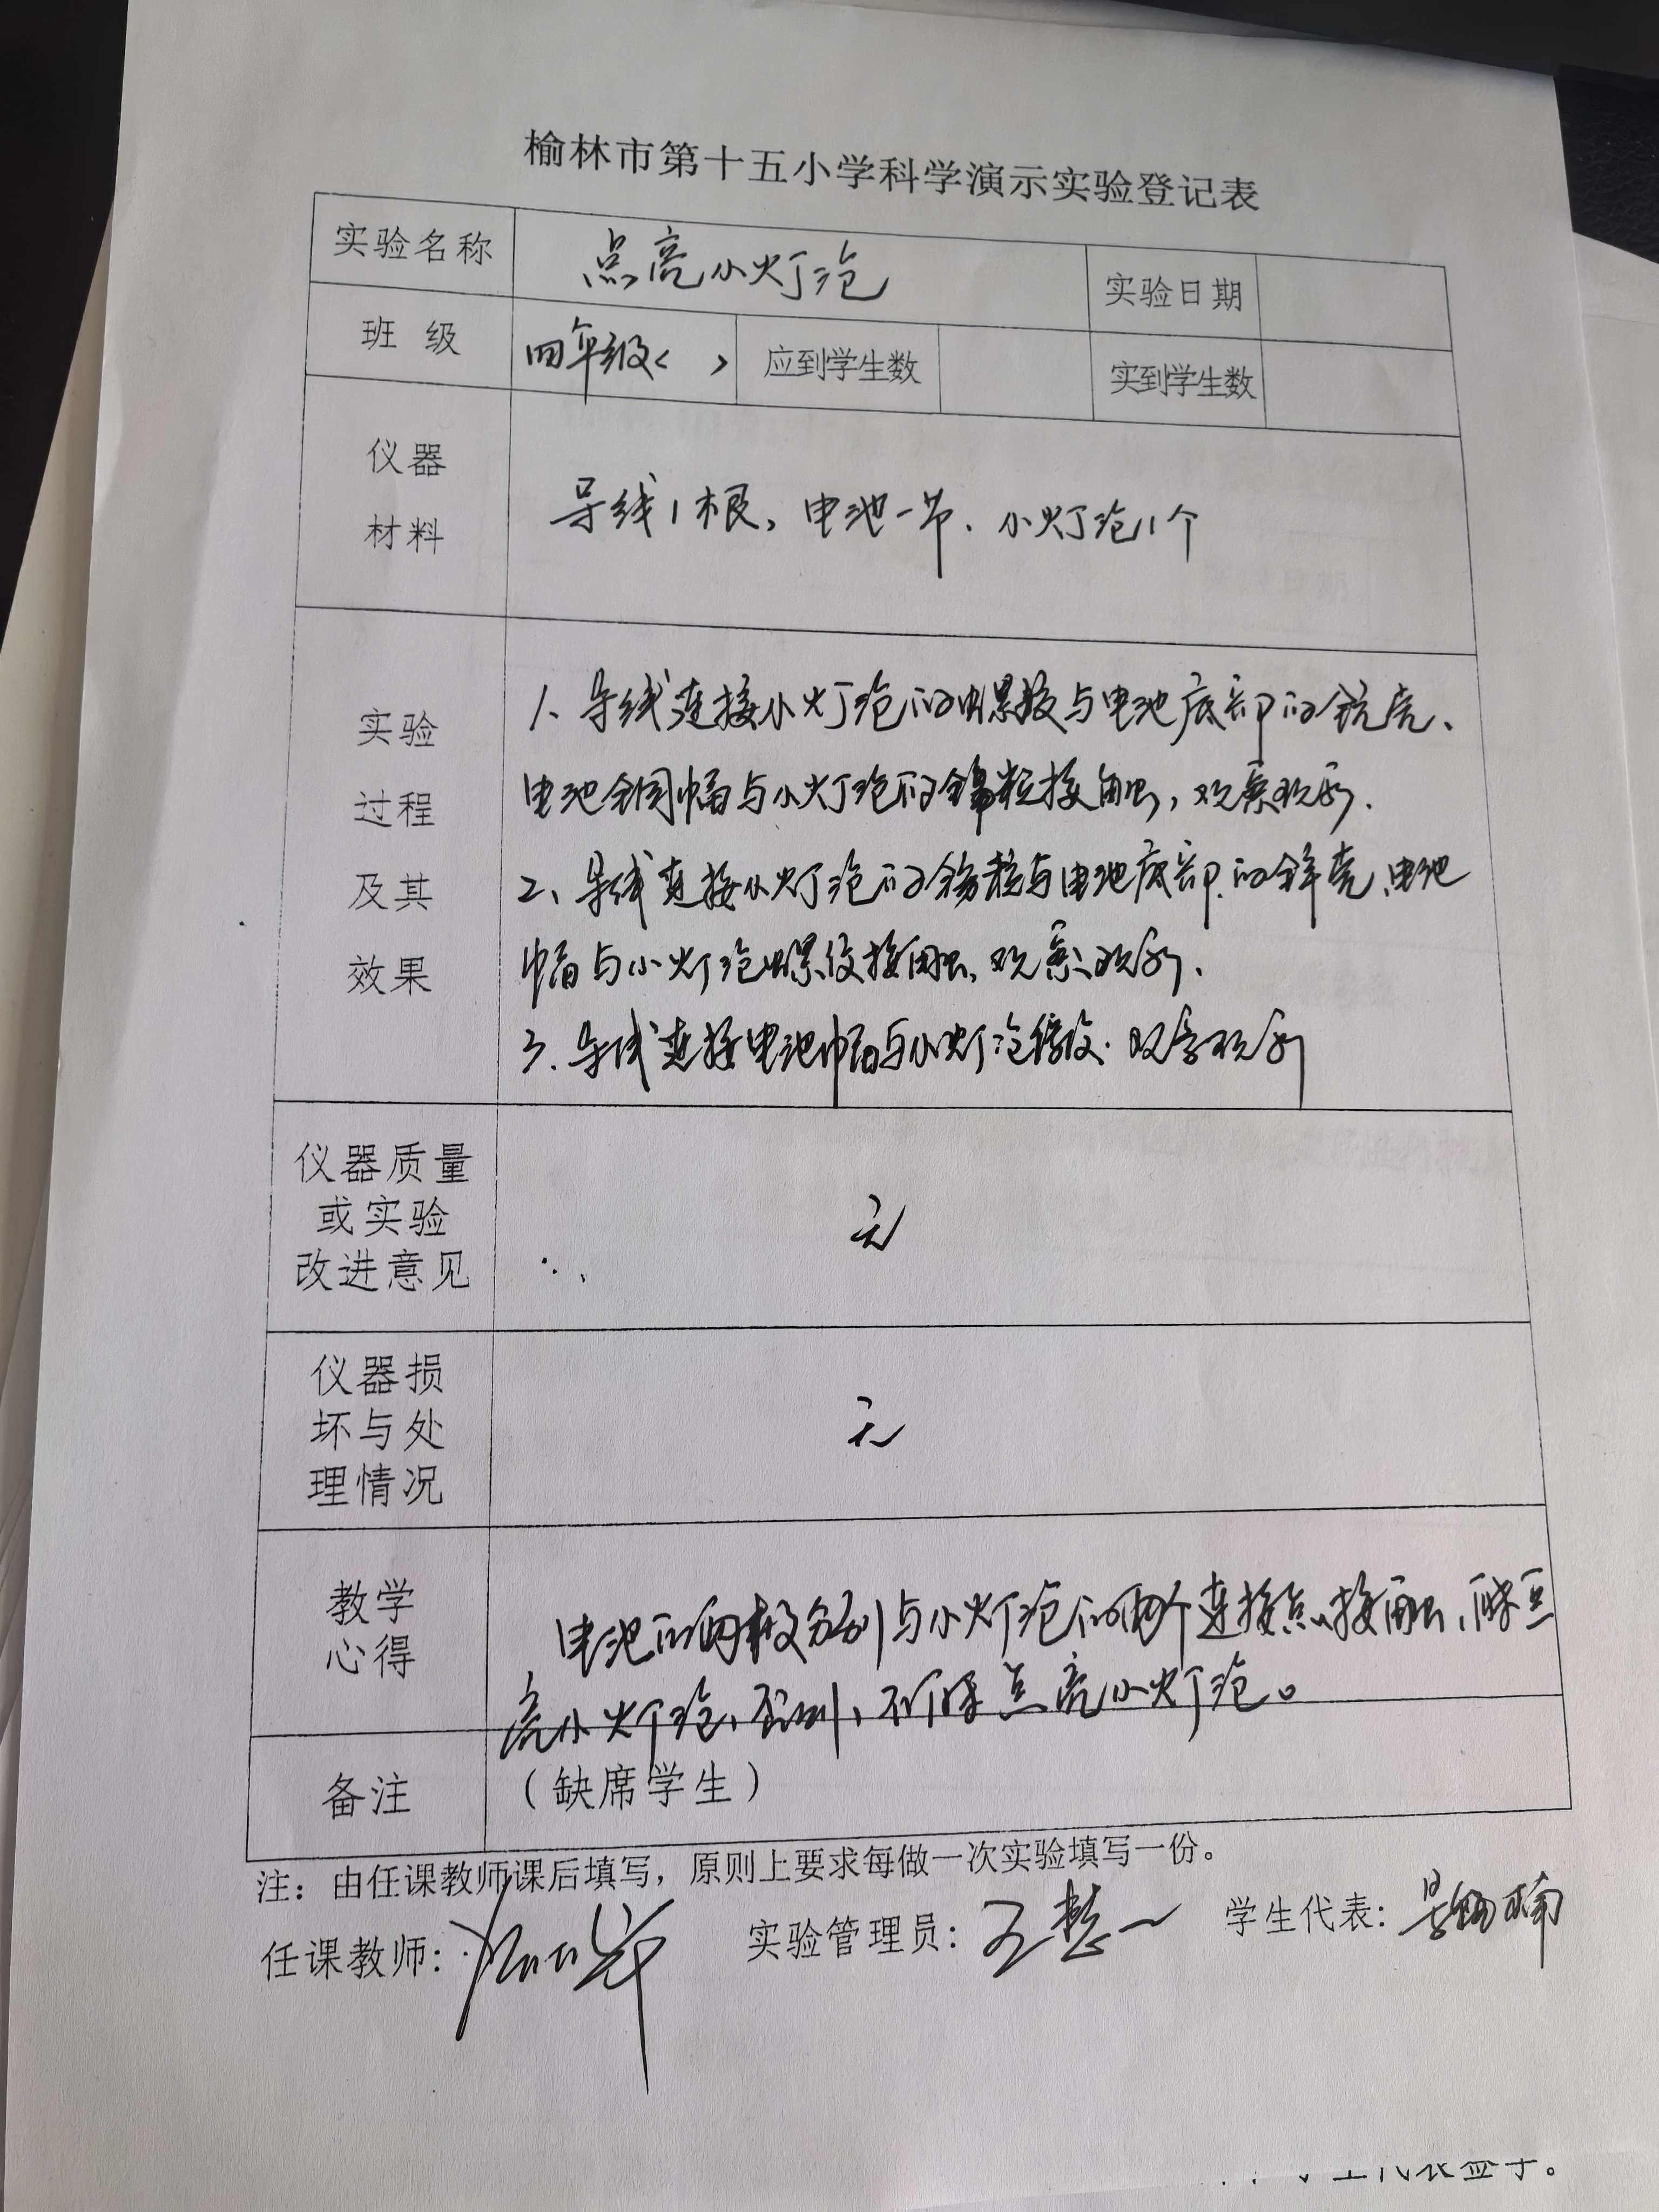 榆林市第十五小学科学演示实验登记表
实验名称 点亮小灯泡 实验日期
班 级 四年级< > 应到学生数 实到学生数
仪器
材料
导线1根，电池一节．小灯泡1个
实验
过程
及其
效果
1、导线连接小灯泡的螺纹与电池底部的锌壳、
电池铜帽与小灯泡的锡粒接触，观察现象．
2、导线连接小灯泡的锡粒与电池底部的锌壳、电池
帽与小灯泡螺纹接触，观察现象．
3．导线连接电池帽与小灯泡螺纹．观察现象
仪器质量
或实验
改进意见
无
仪器损
坏与处
理情况
无
教学
心得
电池的两极分别与小灯泡的两个连接点接触，能点
亮小灯泡，否则，不能点亮小灯泡。
备注 （缺席学生）
注：由任课教师课后填写，原则上要求每做一次实验填写一份。
任课教师： 实验管理员： 学生代表：